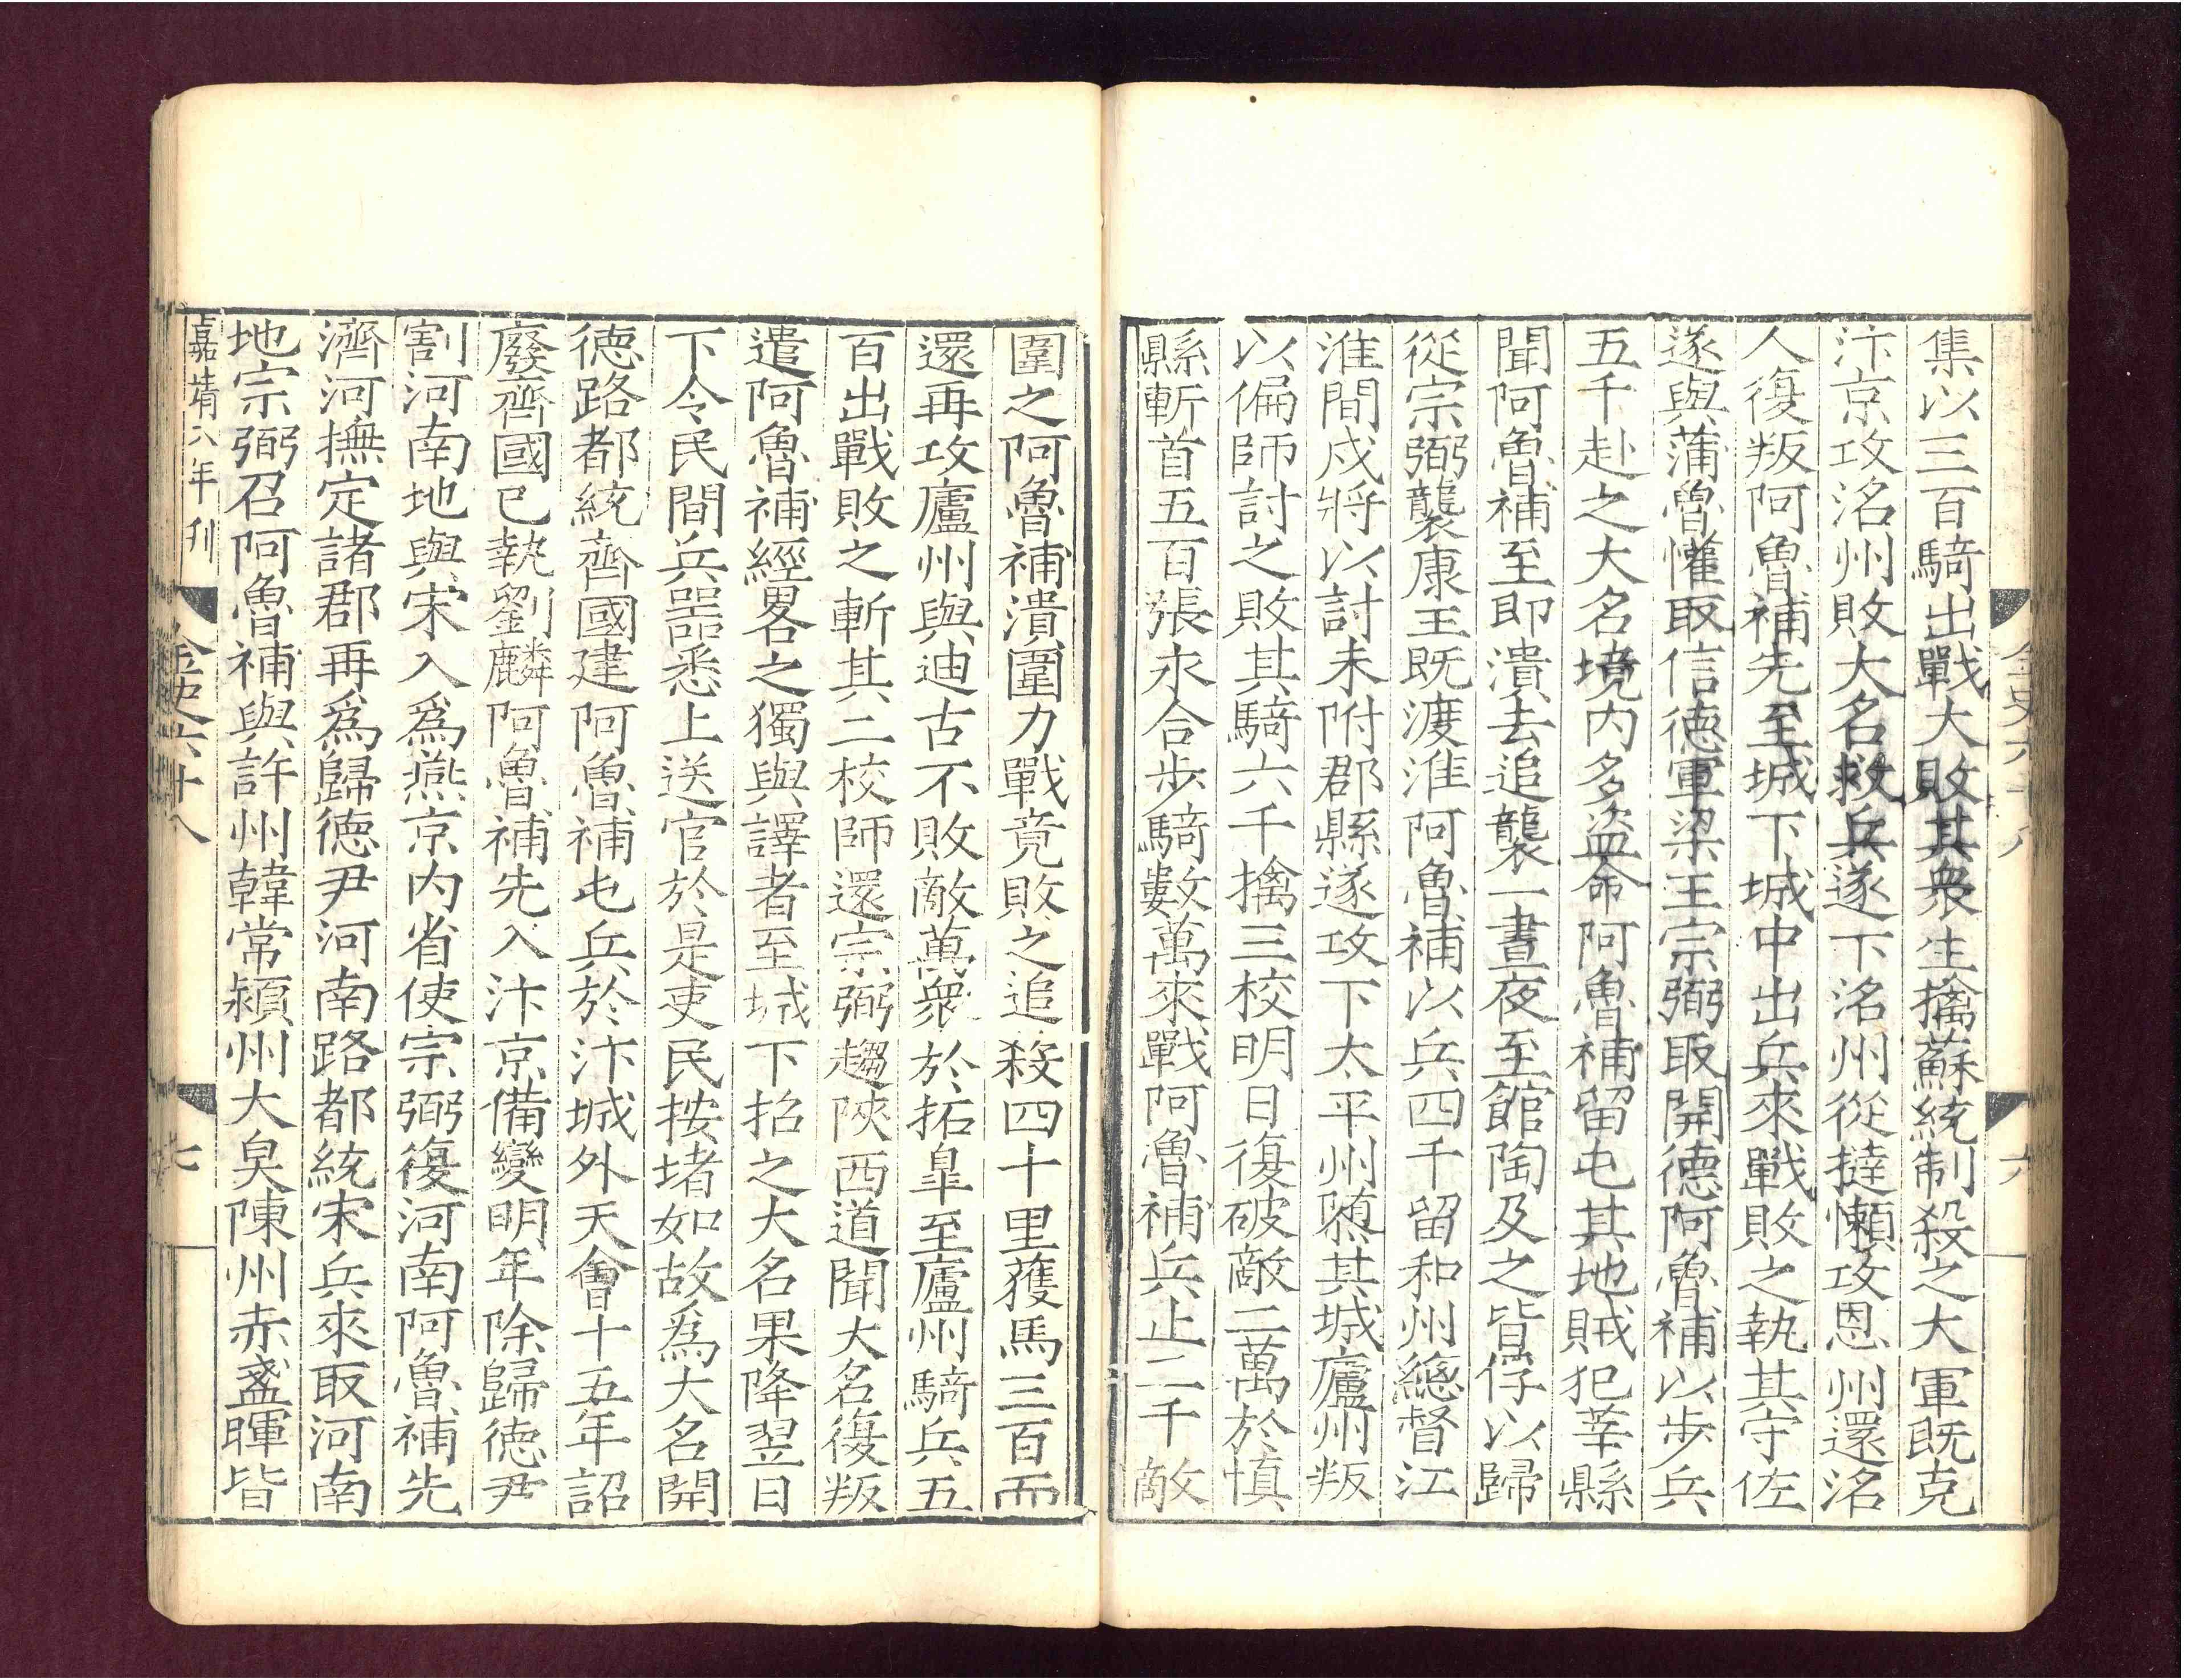 金史六十八 六
集以三百騎出戰大敗其衆生擒蘇統制殺之大軍既克
汴京攻洺州敗大名救兵遂下洺州從撻懶攻恩州還洺
人復叛阿魯補先至城下城中出兵來戰敗之執其守佐
遂與蒲魯懽取信德軍梁王宗弼取開德阿魯補以步兵
五千赴之大名境内多盗命阿魯補留屯其地賊犯莘縣
聞阿魯補至即潰去追襲一晝夜至館陶及之皆俘以歸
從宗弼襲康王既渡淮阿魯補以兵四千留和州總督江
淮間戍將以討未附郡縣遂攻下太平州隳其城廬州叛
以偏師討之敗其騎六千擒三校明日復破敵二萬於慎
縣斬首五百張永合步騎數萬來戰阿魯補兵止二千敵
圍之阿魯補潰圍力戰竟敗之追殺四十里獲馬三百而
還再攻廬州與迪古不敗敵萬衆於拓臯至廬州騎兵五
百出戰敗之斬其二校師還宗弼趨陝西道聞大名復叛
遣阿魯補經畧之獨與譯者至城下招之大名果降翌日
下令民間兵器悉上送官於是吏民按堵如故爲大名開
德路都統齊國建阿魯補屯兵於汴城外天會十五年詔
廢齊國已執劉麟阿魯補先入汴京備變明年除歸德尹
割河南地與宋入爲燕京内省使宗弼復河南阿魯補先
濟河撫定諸郡再爲歸德尹河南路都統宋兵來取河南
地宗弼召阿魯補與許州韓常潁州大㚖陳州赤盞暉皆
嘉靖八年刊 金史六十八 七